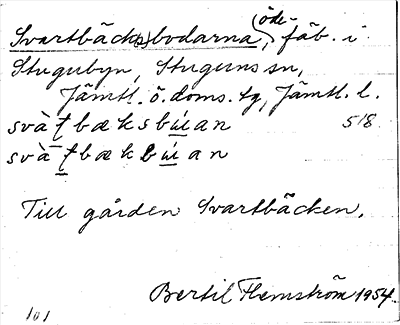 Svartbäck(s)bodarna, (öde) fäb. i
Stugubyn, Stuguns sn,
Jämtl. ö. doms. tg, Jämtl. l.
518.
Till gården Svartbäcken.
Bertil Flemström 1954.
101